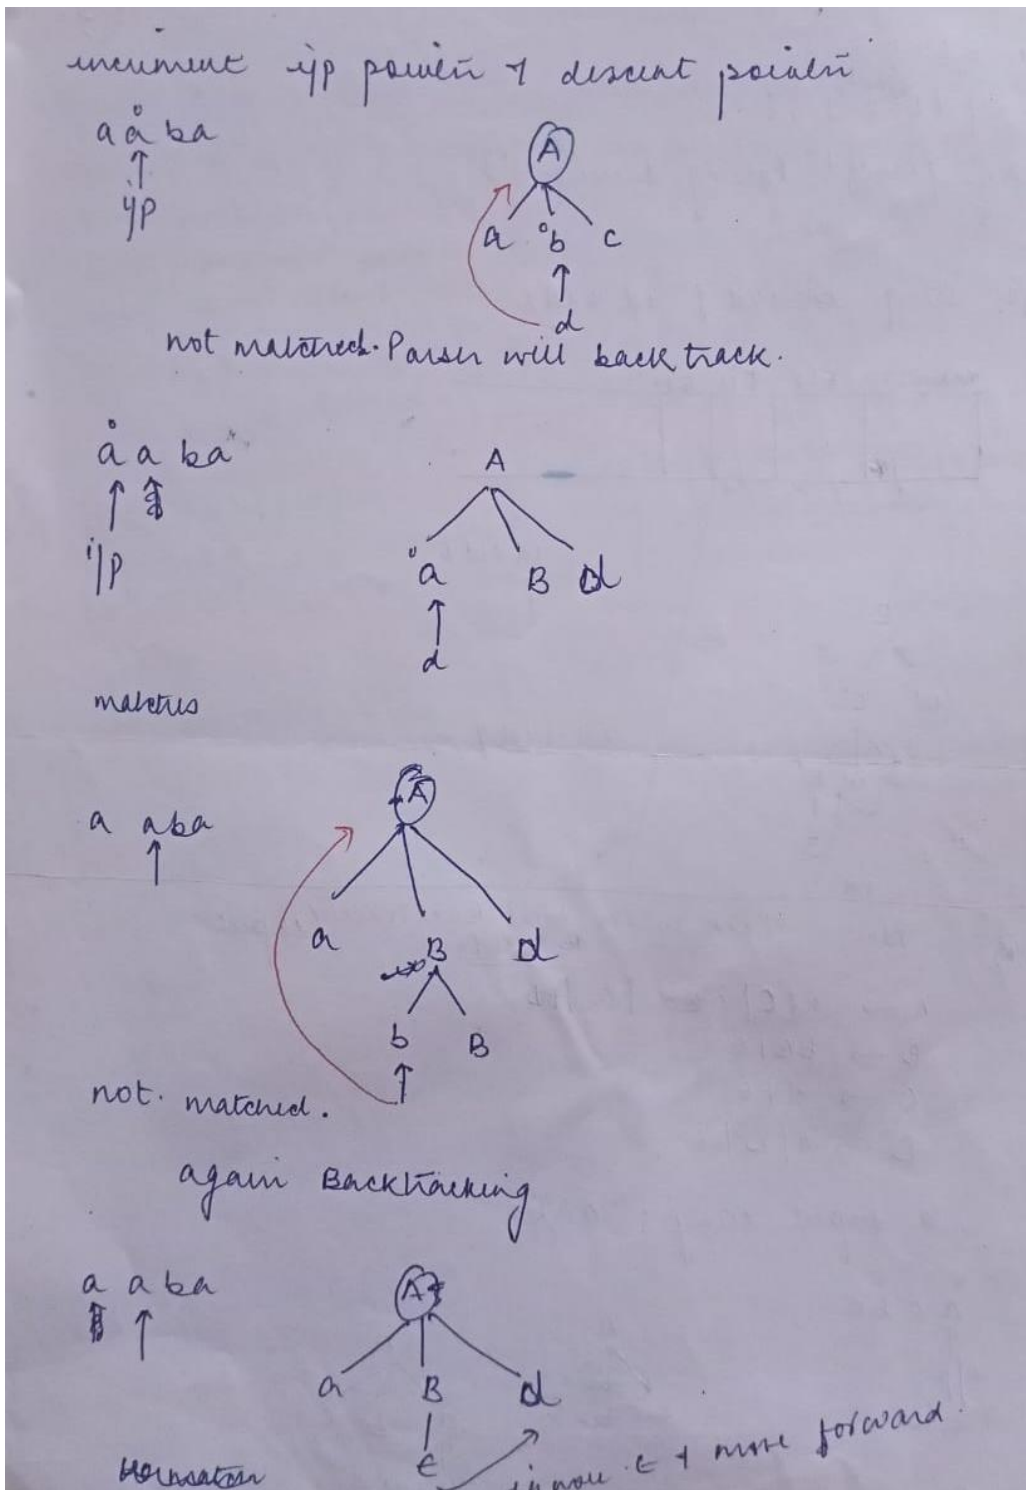 increment i/p pointer & descent pointer
a a ba
i/p
A
a b c
d
not matched. Parser will back track.
a a ba
i/p
A
a B d
d
matches
a aba
A
a B d
b B
not. matched.
again Backtracking
a a ba
A
a B d
ε
ignore ε & move forward.